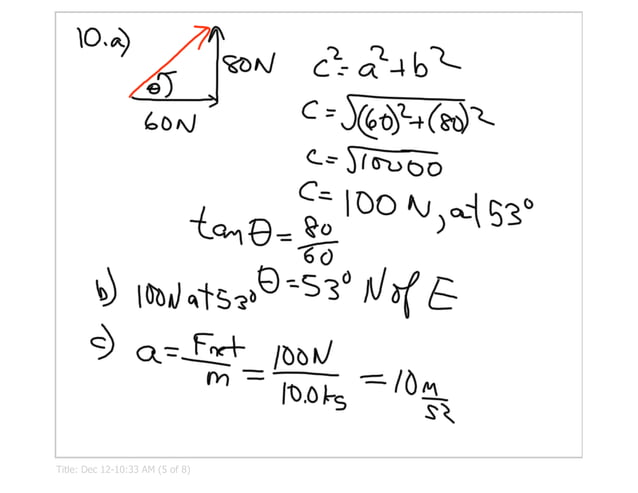 10.a)
80N
θ
60N
c²=a²+b²
c=√(60)²+(80)²
c=√10000
c=100N, at 53°
tanθ=80/60
b) 100N at 53° θ=53° N of E
c) a=Fnet/m=100N/10.0kg=10 m/s²
Title: Dec 12-10:33 AM (5 of 8)